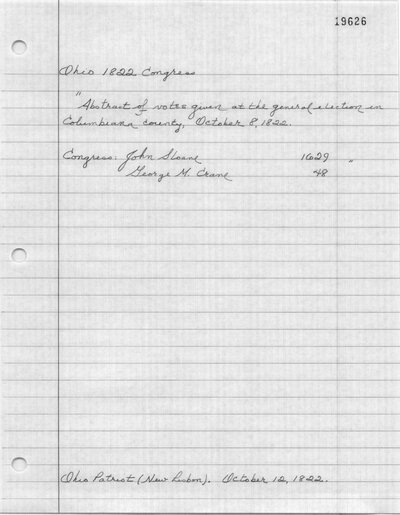 19626
Ohio 1822 Congress
"Abstract of votes given at the general election in
Columbiana county, October 8, 1822.
Congress: John Sloane 1629 "
George M. Crane 48
Ohio Patriot (New Lisbon). October 12, 1822.